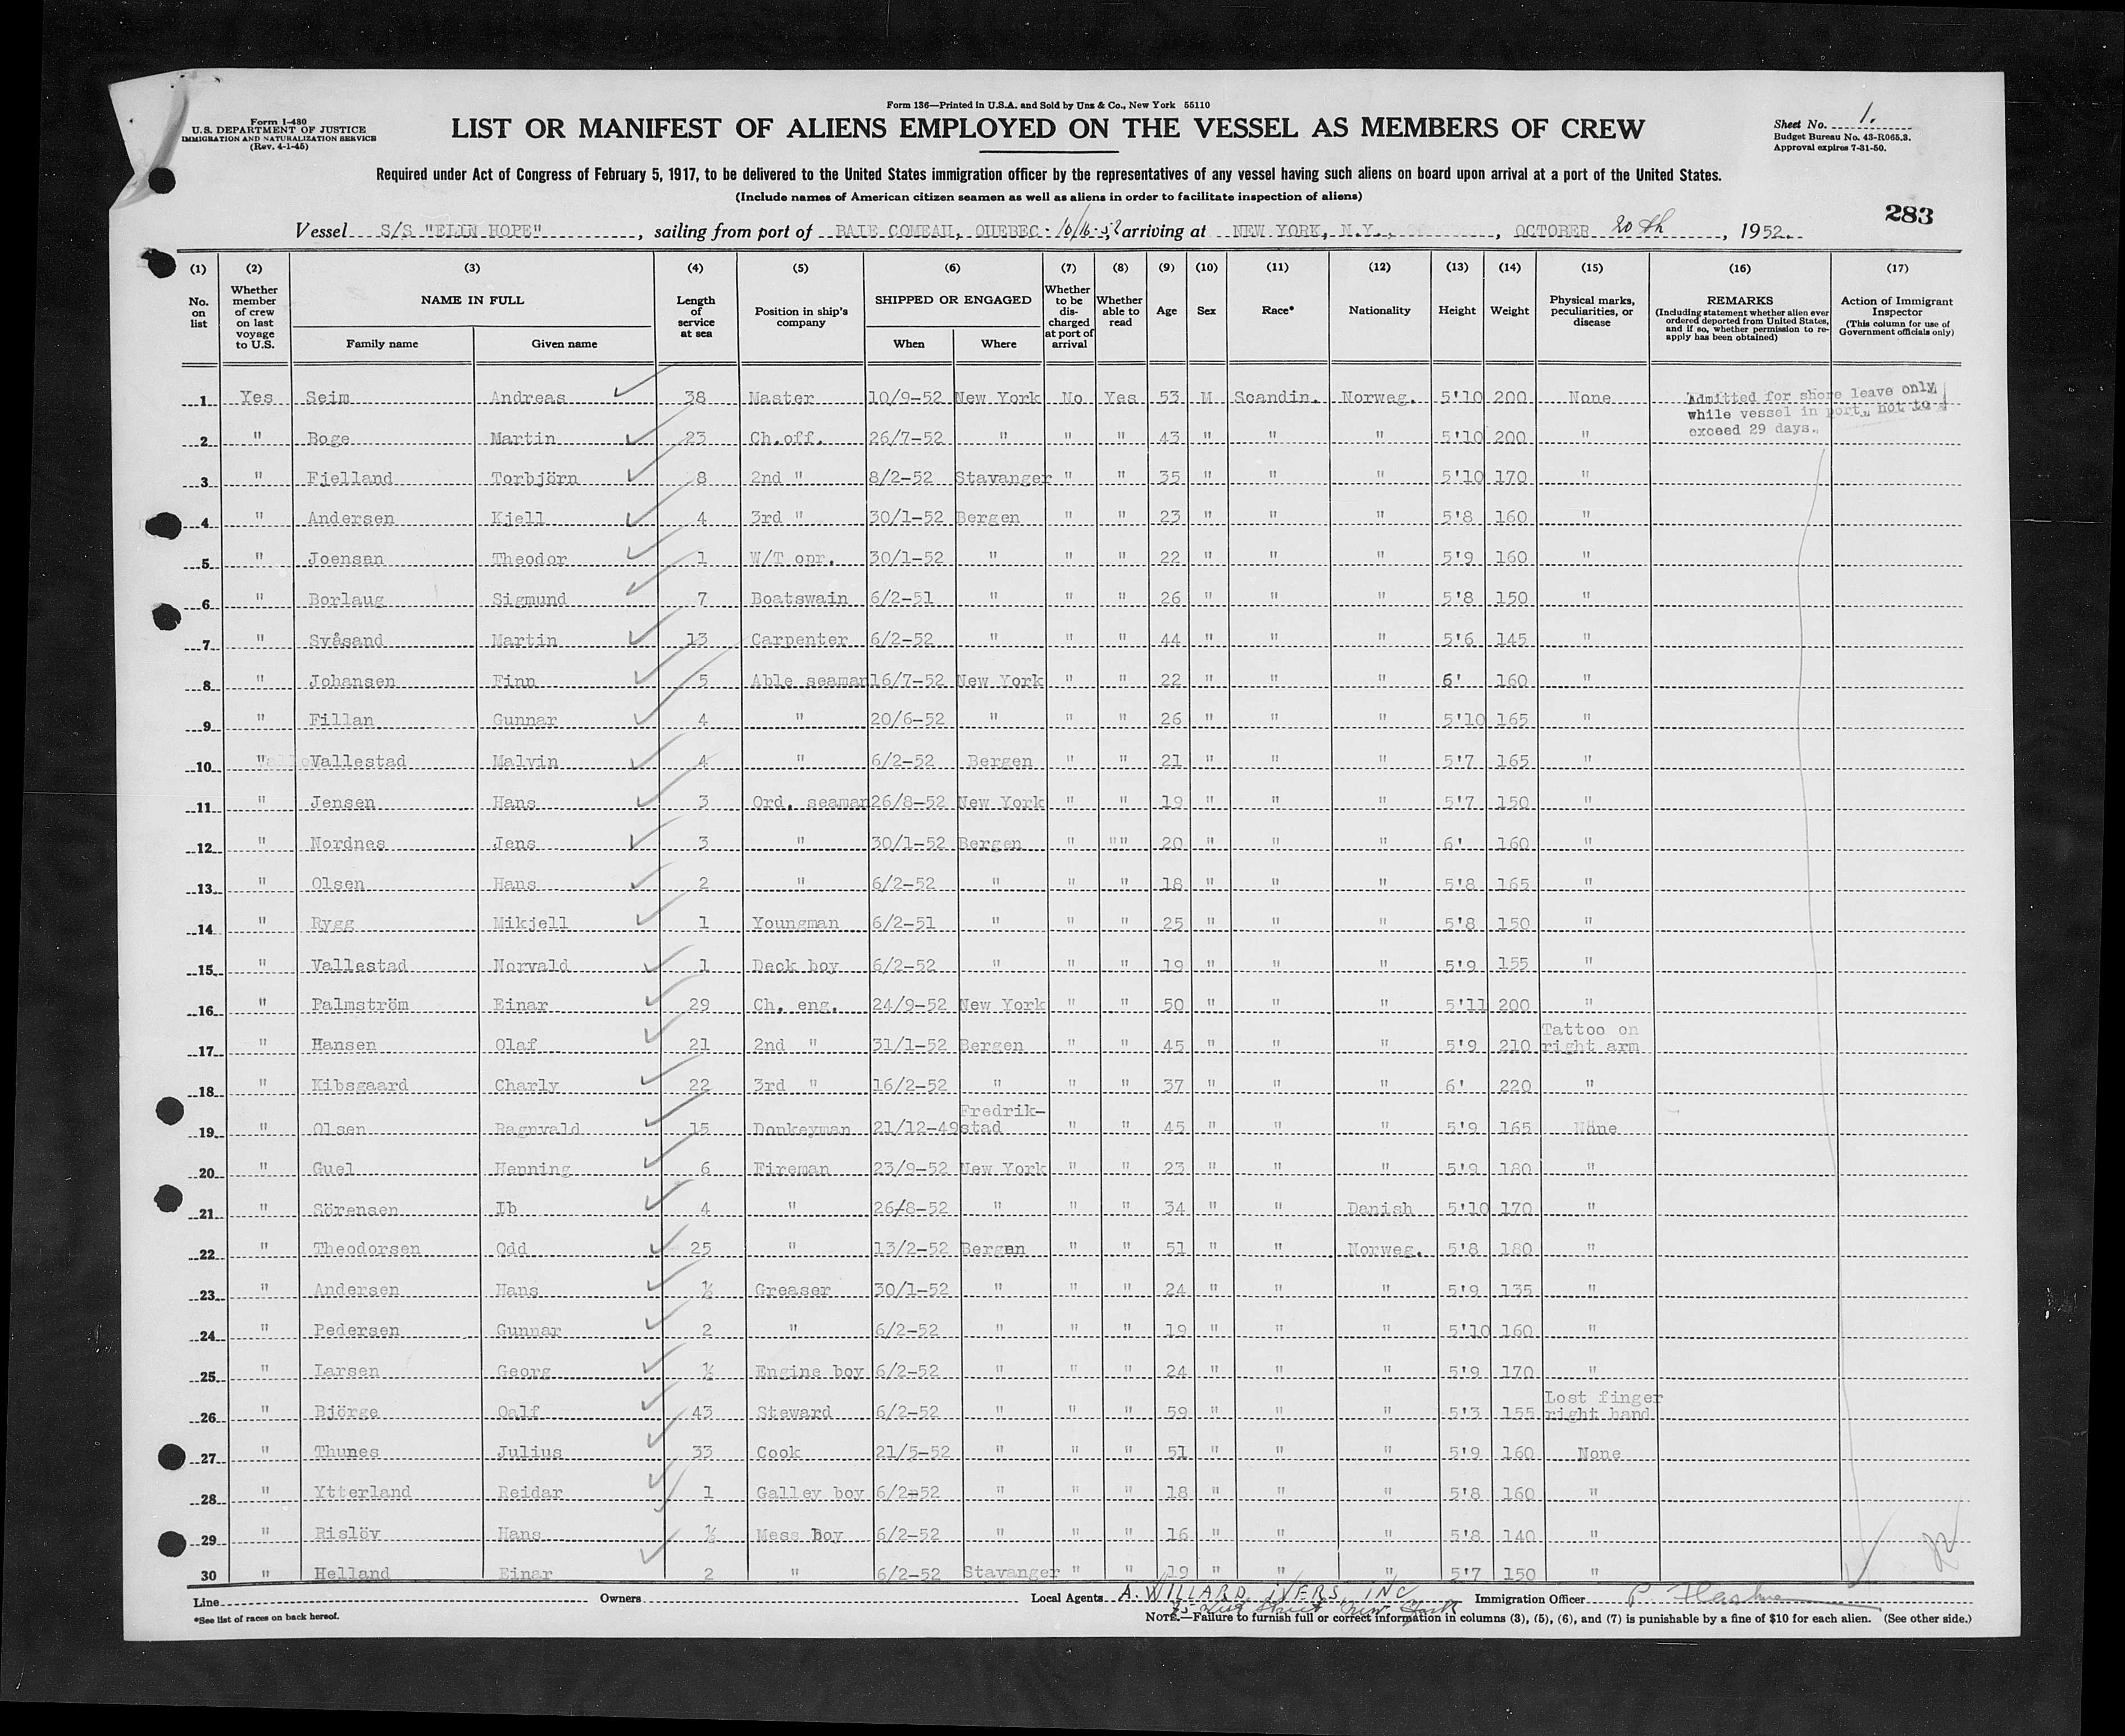 Form 136—Printed in U.S.A. and Sold by Unz & Co., New York 55110
Form I-480
U.S. DEPARTMENT OF JUSTICE
IMMIGRATION AND NATURALIZATION SERVICE
(Rev. 4-1-45)
LIST OR MANIFEST OF ALIENS EMPLOYED ON THE VESSEL AS MEMBERS OF CREW
Sheet No. 1.
Budget Bureau No. 43-R065.3.
Approval expires 7-31-50.
Required under Act of Congress of February 5, 1917, to be delivered to the United States immigration officer by the representatives of any vessel having such aliens on board upon arrival at a port of the United States.
(Include names of American citizen seamen as well as aliens in order to facilitate inspection of aliens)
283
Vessel S/S "ELIN HOPE", sailing from port of BAIE COMEAU, QUEBEC - 10/16-52, arriving at NEW YORK, N.Y., OCTOBER 20th, 1952.
(1) (2) (3) (4) (5) (6) (7) (8) (9) (10) (11) (12) (13) (14) (15) (16) (17)
No. on list
Whether member of crew on last voyage to U.S.
NAME IN FULL
Family name Given name
Length of service at sea
Position in ship's company
SHIPPED OR ENGAGED
When Where
Whether to be discharged at port of arrival
Whether able to read
Age
Sex
Race*
Nationality
Height
Weight
Physical marks, peculiarities, or disease
REMARKS
(Including statement whether alien ever ordered deported from United States, and if so, whether permission to re-apply has been obtained)
Action of Immigrant Inspector
(This column for use of Government officials only)
1 Yes Seim Andreas 38 Master 10/9-52 New York No Yes 53 M Scandin. Norweg. 5'10 200 None
Admitted for shore leave only
while vessel in port, not to
exceed 29 days.
2 " Boge Martin 23 Ch.off. 26/7-52 " " " 43 " " " 5'10 200 "
3 " Fjelland Torbjörn 8 2nd " 8/2-52 Stavanger " " 35 " " " 5'10 170 "
4 " Andersen Kjell 4 3rd " 30/1-52 Bergen " " 23 " " " 5'8 160 "
5 " Joensen Theodor 1 W/T opr. 30/1-52 " " " 22 " " " 5'9 160 "
6 " Borlaug Sigmund 7 Boatswain 6/2-51 " " " 26 " " " 5'8 150 "
7 " Svåsand Martin 13 Carpenter 6/2-52 " " " 44 " " " 5'6 145 "
8 " Johansen Finn 5 Able seaman 16/7-52 New York " " 22 " " " 6' 160 "
9 " Fillan Gunnar 4 " 20/6-52 " " " 26 " " " 5'10 165 "
10 " Vallestad Malvin 4 " 6/2-52 Bergen " " 21 " " " 5'7 165 "
11 " Jensen Hans 3 Ord. seaman 26/8-52 New York " " 19 " " " 5'7 150 "
12 " Nordnes Jens 3 " 30/1-52 Bergen " "" 20 " " " 6' 160 "
13 " Olsen Hans 2 " 6/2-52 " " " 18 " " " 5'8 165 "
14 " Rygg Mikjell 1 Youngman 6/2-51 " " " 25 " " " 5'8 150 "
15 " Vallestad Norvald 1 Deck boy 6/2-52 " " " 19 " " " 5'9 155 "
16 " Palmström Einar 29 Ch. eng. 24/9-52 New York " " 50 " " " 5'11 200 "
17 " Hansen Olaf 21 2nd " 31/1-52 Bergen " " 45 " " " 5'9 210 Tattoo on right arm
18 " Kibsgaard Charly 22 3rd " 16/2-52 " " " 37 " " " 6' 220 "
19 " Olsen Ragnvald 15 Donkeyman 21/12-49 Fredrik-stad " " 45 " " " 5'9 165 None
20 " Guel Henning 6 Fireman 23/9-52 New York " " 23 " " " 5'9 180 "
21 " Sörensen Ib 4 " 26/8-52 " " " 34 " " Danish 5'10 170 "
22 " Theodorsen Odd 25 " 13/2-52 Bergen " " 51 " " Norweg. 5'8 180 "
23 " Andersen Hans ½ Greaser 30/1-52 " " " 24 " " " 5'9 135 "
24 " Pedersen Gunnar 2 " 6/2-52 " " " 19 " " " 5'10 160 "
25 " Larsen Georg ½ Engine boy 6/2-52 " " " 24 " " " 5'9 170 "
26 " Björge Oalf 43 Steward 6/2-52 " " " 59 " " " 5'3 155 Lost finger right hand
27 " Thunes Julius 33 Cook 21/5-52 " " " 51 " " " 5'9 160 None
28 " Ytterland Reidar 1 Galley boy 6/2-52 " " " 18 " " " 5'8 160 "
29 " Rislöv Hans ½ Mess Boy 6/2-52 " " " 16 " " " 5'8 140 "
30 " Helland Einar 2 " 6/2-52 Stavanger " " 19 " " " 5'7 150 "
Line Owners Local Agents A. WILLARD IVERS INC Immigration Officer
West Street New York
*See list of races on back hereof.
NOTE.—Failure to furnish full or correct information in columns (3), (5), (6), and (7) is punishable by a fine of $10 for each alien. (See other side.)